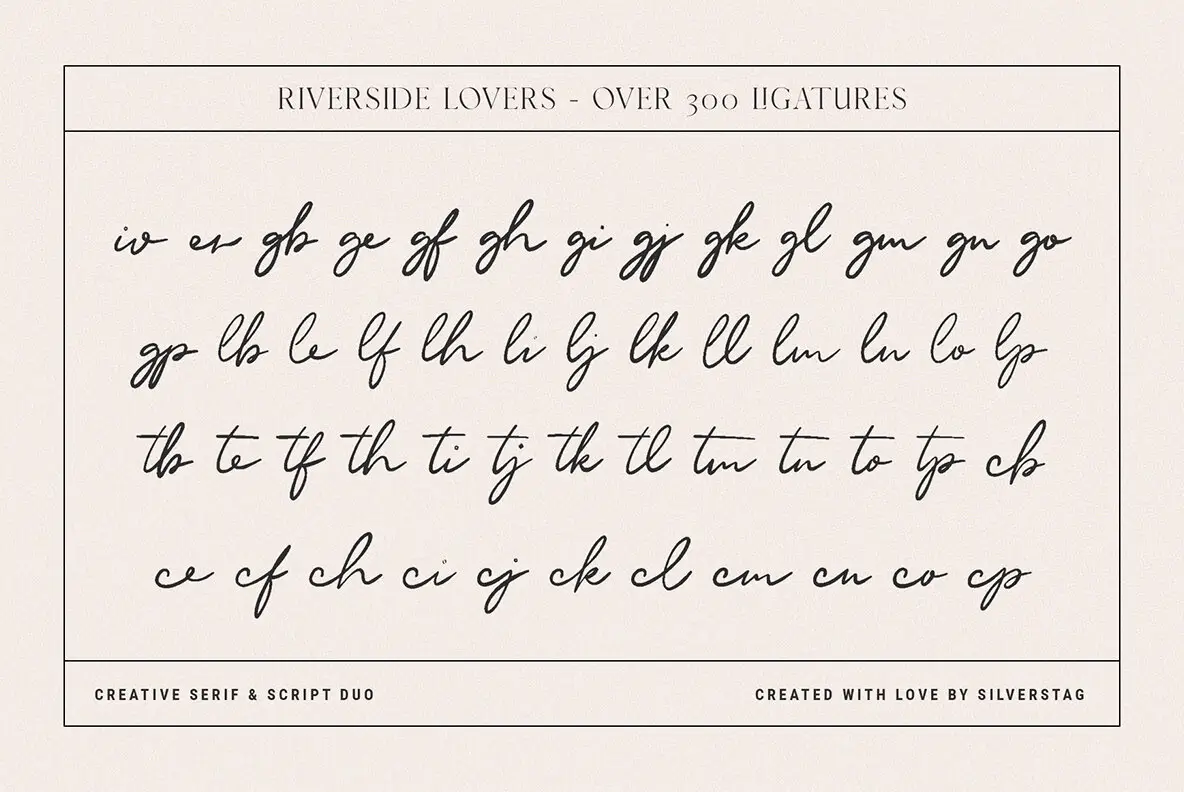 RIVERSIDE LOVERS - OVER 300 LIGATURES
iv er gb ge gf gh gi gj gk gl gm gn go
gp lb le lf lh li lj lk ll lm ln lo lp
tb te tf th ti tj tk tl tm tn to tp cb
ce cf ch ci cj ck cl cm cn co cp
CREATIVE SERIF & SCRIPT DUO
CREATED WITH LOVE BY SILVERSTAG